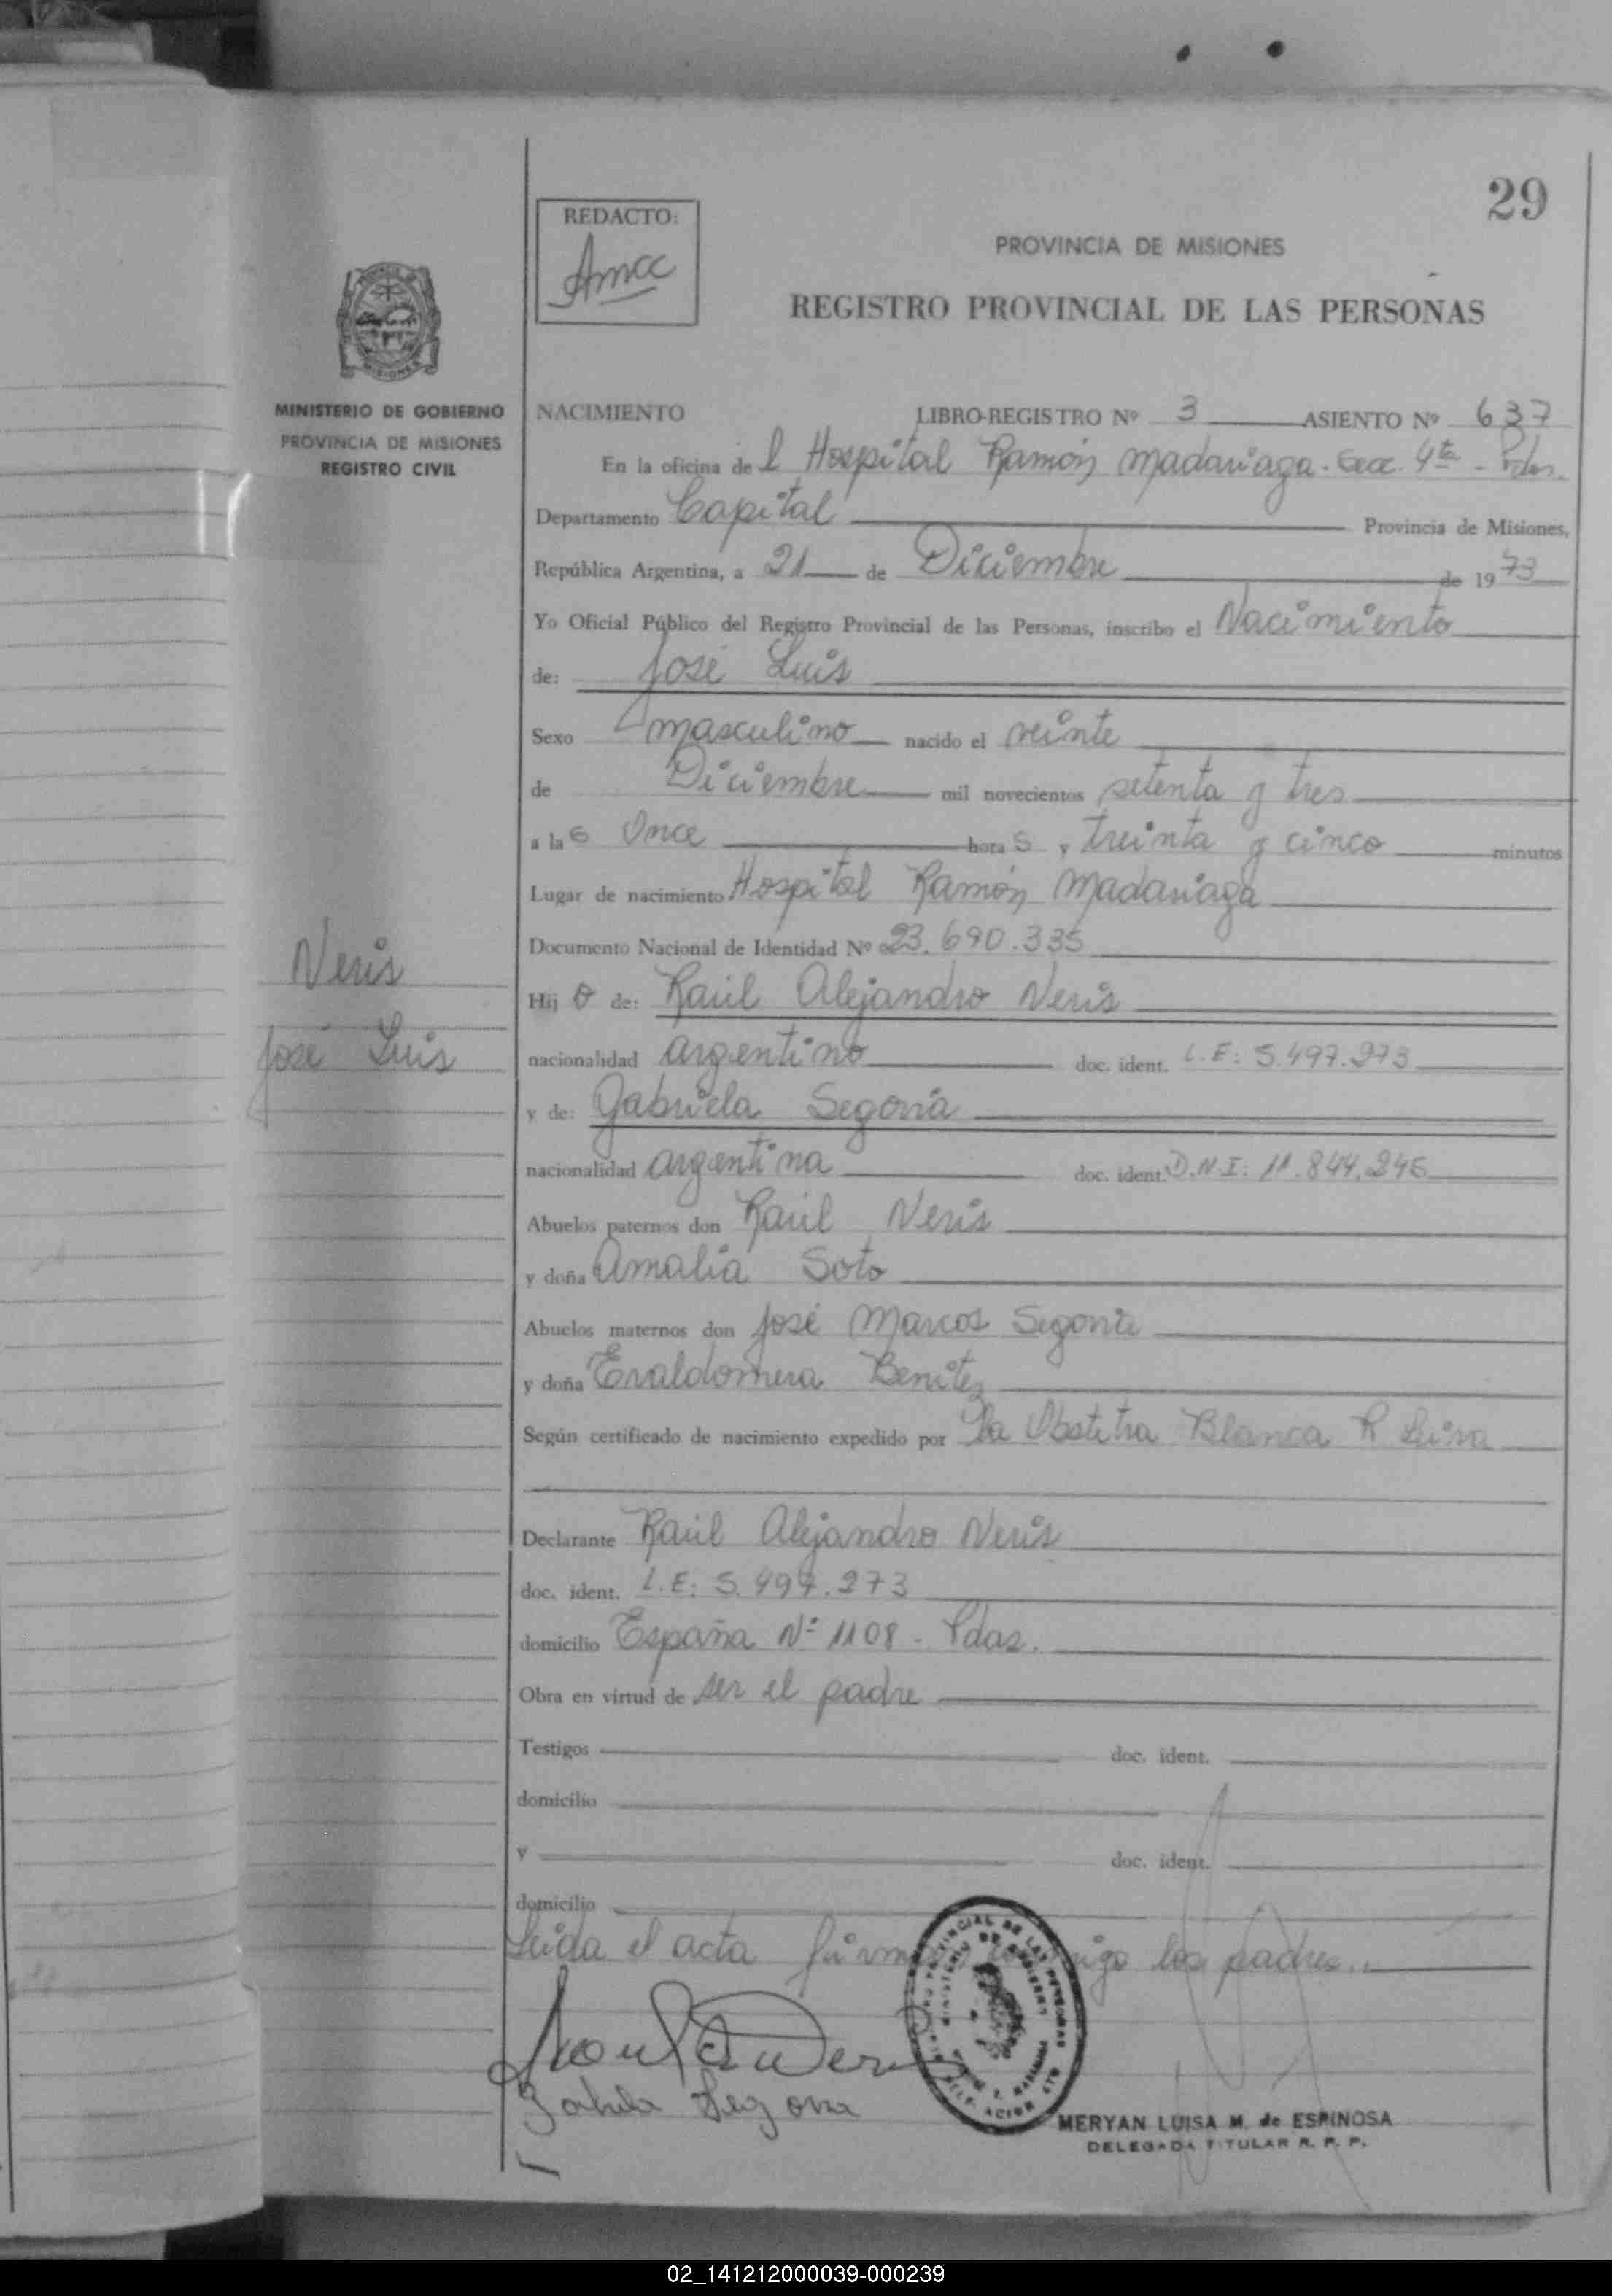 29
REDACTO:
Amcc
PROVINCIA DE MISIONES
REGISTRO PROVINCIAL DE LAS PERSONAS
MISIONES
MINISTERIO DE GOBIERNO
PROVINCIA DE MISIONES
REGISTRO CIVIL
NACIMIENTO LIBRO-REGISTRO Nº 3 ASIENTO Nº 637
En la oficina del Hospital Ramón Madariaga. Secc. 4ta - Pdas.
Departamento Capital Provincia de Misiones,
República Argentina, a 21 de Diciembre de 1973
Yo Oficial Público del Registro Provincial de las Personas, inscribo el Nacimiento
de: José Luis
Sexo masculino nacido el veinte
de Diciembre mil novecientos setenta y tres
a las Once horas y treinta y cinco minutos
Lugar de nacimiento Hospital Ramón Madariaga
Documento Nacional de Identidad Nº 23.690.335
Neris
José Luis
Hijo de: Raúl Alejandro Neris
nacionalidad argentino doc. ident. L.E: 5.497.273
y de: Gabriela Segovia
nacionalidad argentina doc. ident. D.N.I: 11.844.245
Abuelos paternos don Raúl Neris
y doña Amalia Soto
Abuelos maternos don José Marcos Segovia
y doña Evaldomera Benitez
Según certificado de nacimiento expedido por la Obstetra Blanca R
Declarante Raúl Alejandro Neris
doc. ident. L.E: 5.497.273
domicilio España Nº 1108 - Pdas.
Obra en virtud de ser el padre
Testigos doc. ident.
domicilio
y doc. ident.
domicilio
Leida el acta firman conmigo los padres..
MERYAN LUISA M. de ESPINOSA
DELEGADA TITULAR R. P. P.
02_141212000039-000239